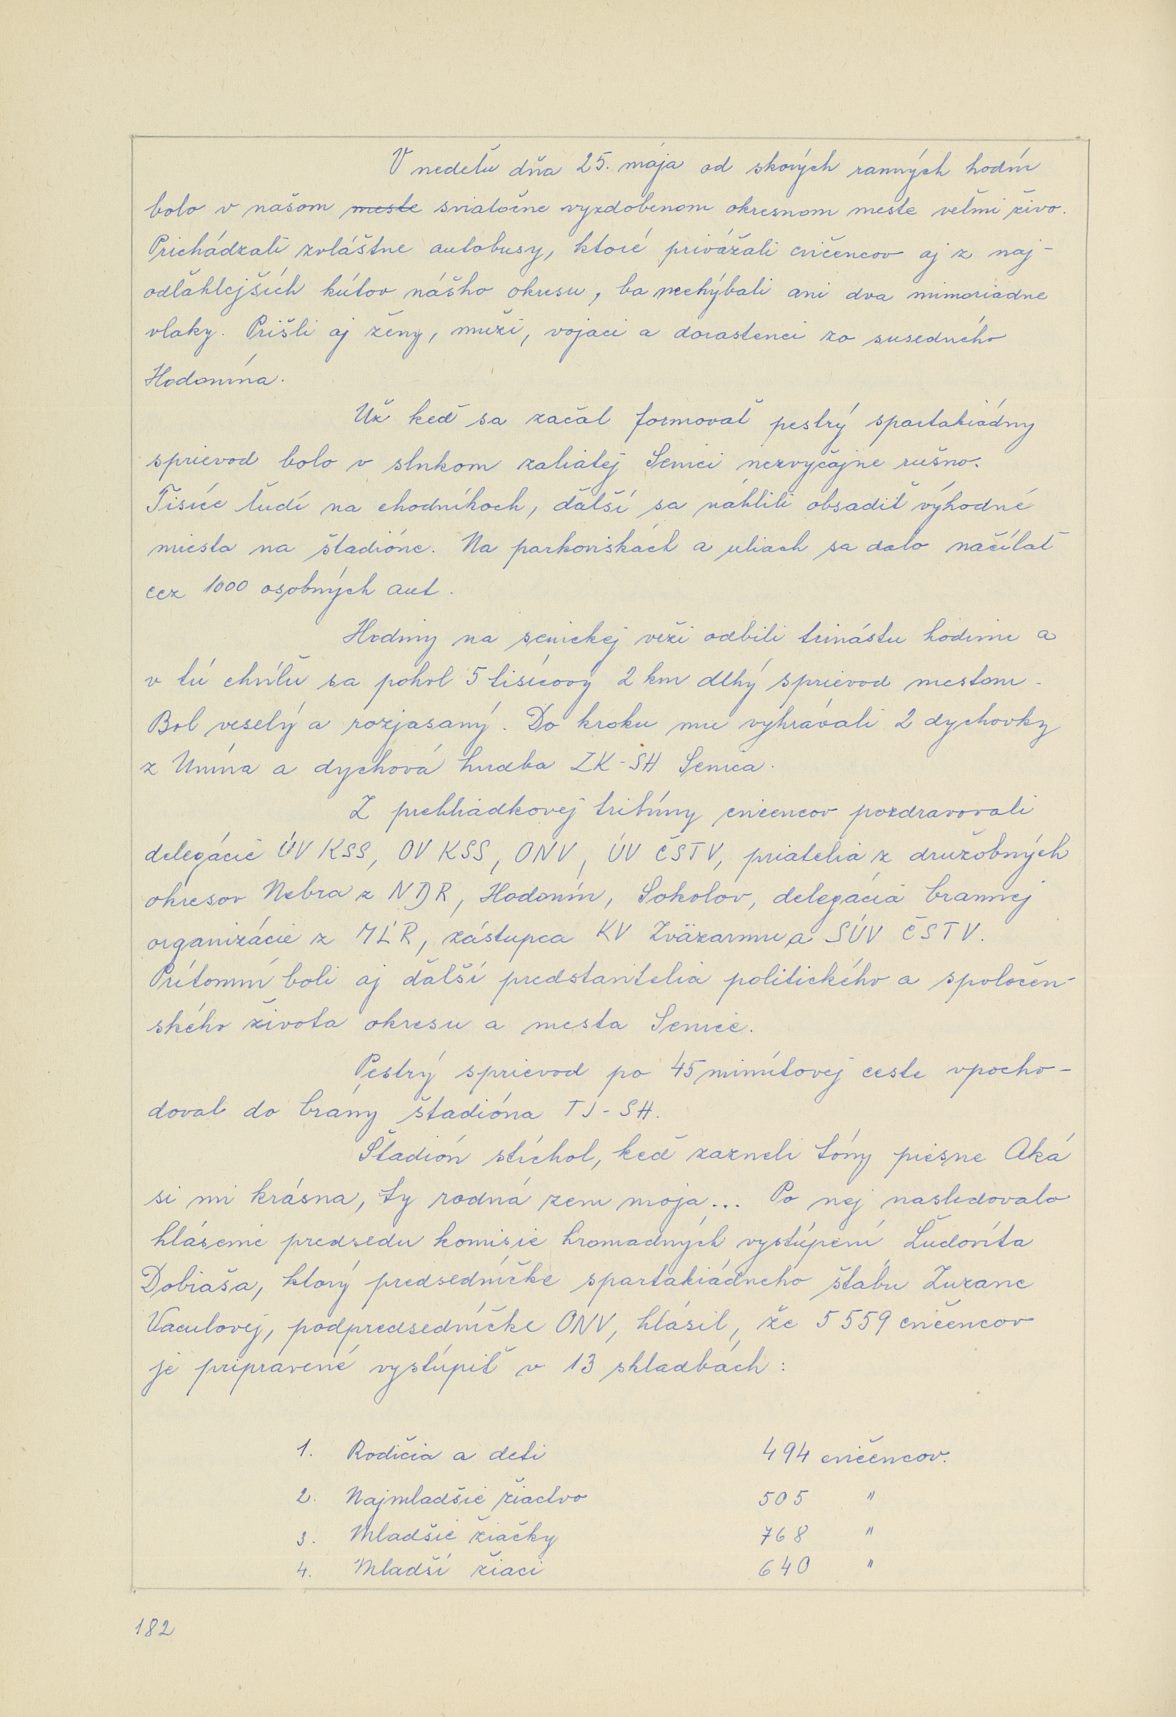 V nedeľu dňa 25. mája od skorých ranných hodín
bolo v našom meste sviatočne vyzdobenom okresnom meste veľmi živo.
Prichádzali zvláštne autobusy, ktoré privážali cvičencov aj z naj-
odľahlejších kútov nášho okresu, ba nechýbali ani dva mimoriadne
vlaky. Prišli aj ženy, muži, vojaci a dorastenci zo susedného
Hodonína.
Už keď sa začal formovať pestrý spartakiádny
sprievod bolo v slnkom zaliatej Senici nezvyčajne rušno.
Tisíce ľudí na chodníkoch, ďalší sa náhlili obsadiť výhodné
miesta na štadióne. Na parkoviskách a uliach sa dalo načítať
cez 1000 osobných aut.
Hodiny na senickej veži odbili trinástu hodinu a
v tú chvíľu sa pohol 5 tisícový 2 km dlhý sprievod mestom.
Bol veselý a rozjasaný. Do kroku mu vyhrávali 2 dychovky
z Unína a dychová hudba ZK-SH Senica.
Z prehliadkovej tribúny cvičencov pozdravovali
delegácie ÚV KSS, OV KSS, ONV, ÚV ČSTV, priatelia z družobných
okresov Nebra z NDR, Hodonín, Sokolov, delegácia brannej
organizácie z MĽR, zástupca KV Zväzarmu a SÚV ČSTV.
Prítomní boli aj ďalší predstavitelia politického a spoločen-
ského života okresu a mesta Senice.
Pestrý sprievod po 45 minútovej ceste vpocho-
doval do brány štadióna TJ-SH.
Štadión stíchol, keď zazneli tóny piesne Aká
si mi krásna, ty rodná zem moja... Po nej nasledovalo
hlásenie predsedu komisie hromadných vystúpení Ľudovíta
Dobiaša, ktorý predsedníčke spartakiádneho štábu Zuzane
Vaculovej, podpredsedníčke ONV, hlásil, že 5 559 cvičencov
je pripravené vystúpiť v 13 skladbách:
1. Rodičia a deti 494 cvičencov.
2. Najmladšie žiactvo 505 "
3. Mladšie žiačky 768 "
4. Mladší žiaci 640 "
182